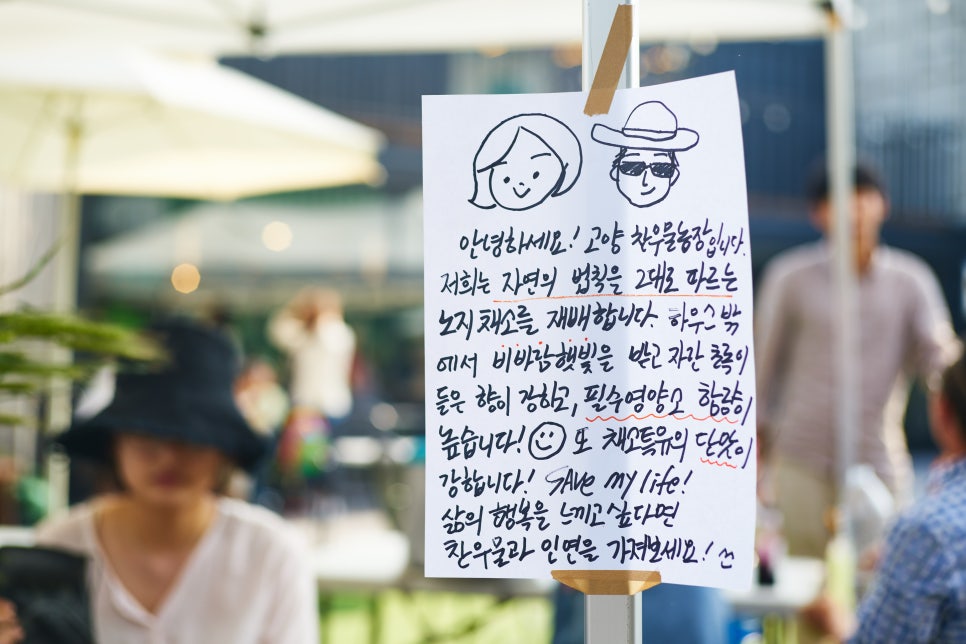 안녕하세요! 고양 찬우물농장입니다.
저희는 자연의 법칙을 그대로 따르는
노지채소를 재배합니다. 하우스 밖
에서 비바람햇빛을 받고 자란 초록이
들은 향이 강하고, 필수영양소 함량이
높습니다! 또 채소특유의 단맛이
강합니다! SAVE my life!
삶의 행복을 느끼고 싶다면
찬우물과 인연을 가져보세요!